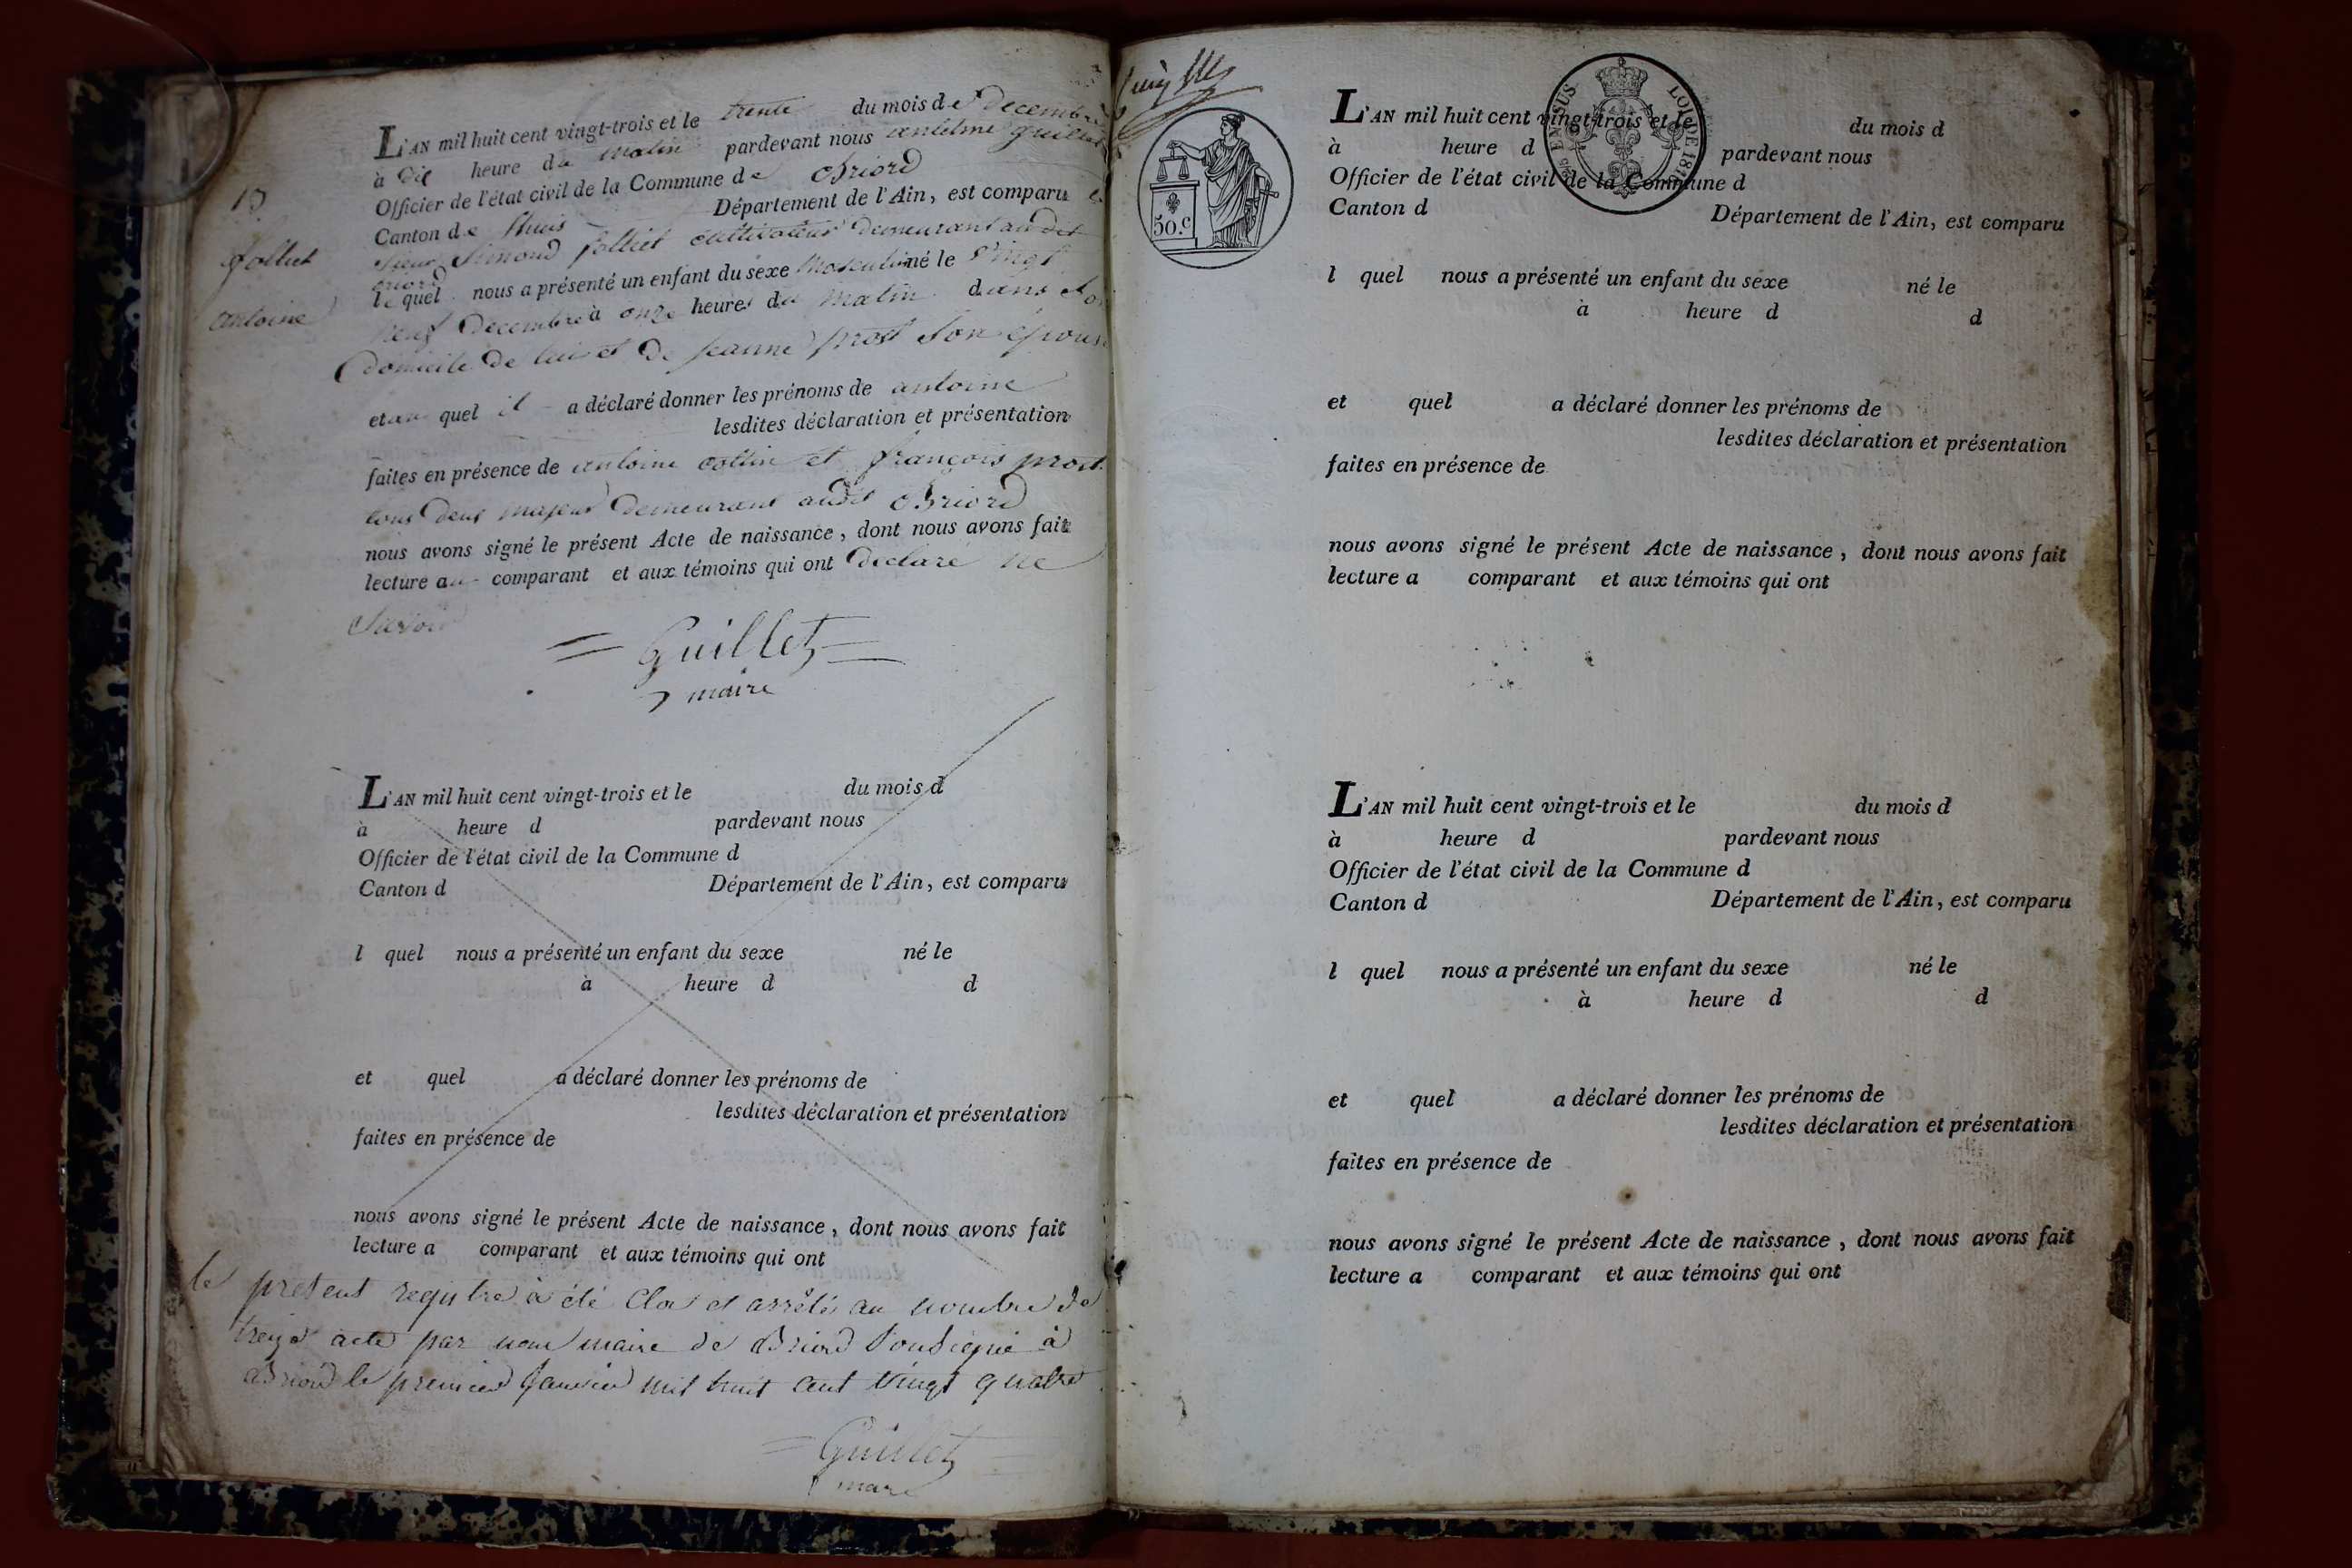 13
Folliet
antoine
L'AN mil huit cent vingt-trois et le trente du mois de Decembre
à Dix heure du matin pardevant nous antelme Guillet
Officier de l'état civil de la Commune de Briord
Canton de Lhuis Département de l'Ain, est comparu le
Sieur Simond folliet cultivateur demeurant audit
Briord
le quel nous a présenté un enfant du sexe Masculin né le Vingt
neuf Decembre à onze heures du Matin dans le
Domicile de lui et de Jeanne prost son épouse
et au quel il a déclaré donner les prénoms de antoine
lesdites déclaration et présentation
faites en présence de antoine collin et françois prost
tous deux majeur Demeurant audit Briord
nous avons signé le présent Acte de naissance, dont nous avons fait
lecture au comparant et aux témoins qui ont declaré ne
Savoir
Guillet
maire
L'AN mil huit cent vingt-trois et le du mois d
à heure d pardevant nous
Officier de l'état civil de la Commune d
Canton d Département de l'Ain, est comparu
l quel nous a présenté un enfant du sexe né le
à heure d d
et quel a déclaré donner les prénoms de
lesdites déclaration et présentation
faites en présence de
nous avons signé le présent Acte de naissance, dont nous avons fait
lecture a comparant et aux témoins qui ont
le present registre à été Clos et arrêté au nombre de
treize acte par nous maire de Briord Soussigné à
Briord le premier Janvier mil huit cent vingt quatre
Guillet
maire
50.c
LOI DE 1816
L'AN mil huit cent vingt-trois et le du mois d
à heure d pardevant nous
Officier de l'état civil de la Commune d
Canton d Département de l'Ain, est comparu
l quel nous a présenté un enfant du sexe né le
à heure d d
et quel a déclaré donner les prénoms de
lesdites déclaration et présentation
faites en présence de
nous avons signé le présent Acte de naissance, dont nous avons fait
lecture a comparant et aux témoins qui ont
L'AN mil huit cent vingt-trois et le du mois d
à heure d pardevant nous
Officier de l'état civil de la Commune d
Canton d Département de l'Ain, est comparu
l quel nous a présenté un enfant du sexe né le
à heure d d
et quel a déclaré donner les prénoms de
lesdites déclaration et présentation
faites en présence de
nous avons signé le présent Acte de naissance, dont nous avons fait
lecture a comparant et aux témoins qui ont